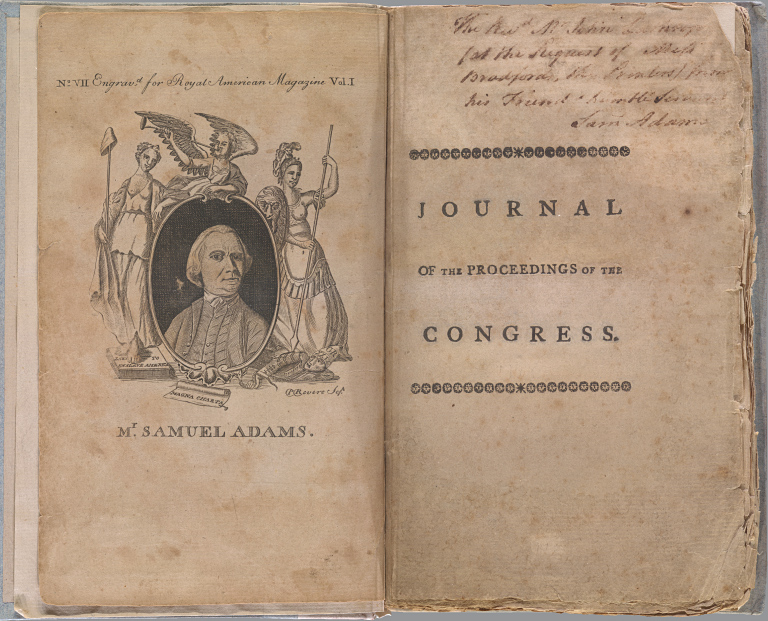 No. VII Engrav.d for Royal American Magazine Vol. I
LAWS TO
ENSLAVE AMERICA
MAGNA CHARTA
P Revere Sp.
Mr. SAMUEL ADAMS.
The Revd. Mr. John
(at the Request of
Bradford, from
his Friend & humble Servant
Saml Adams
JOURNAL
OF THE PROCEEDINGS OF THE
CONGRESS.